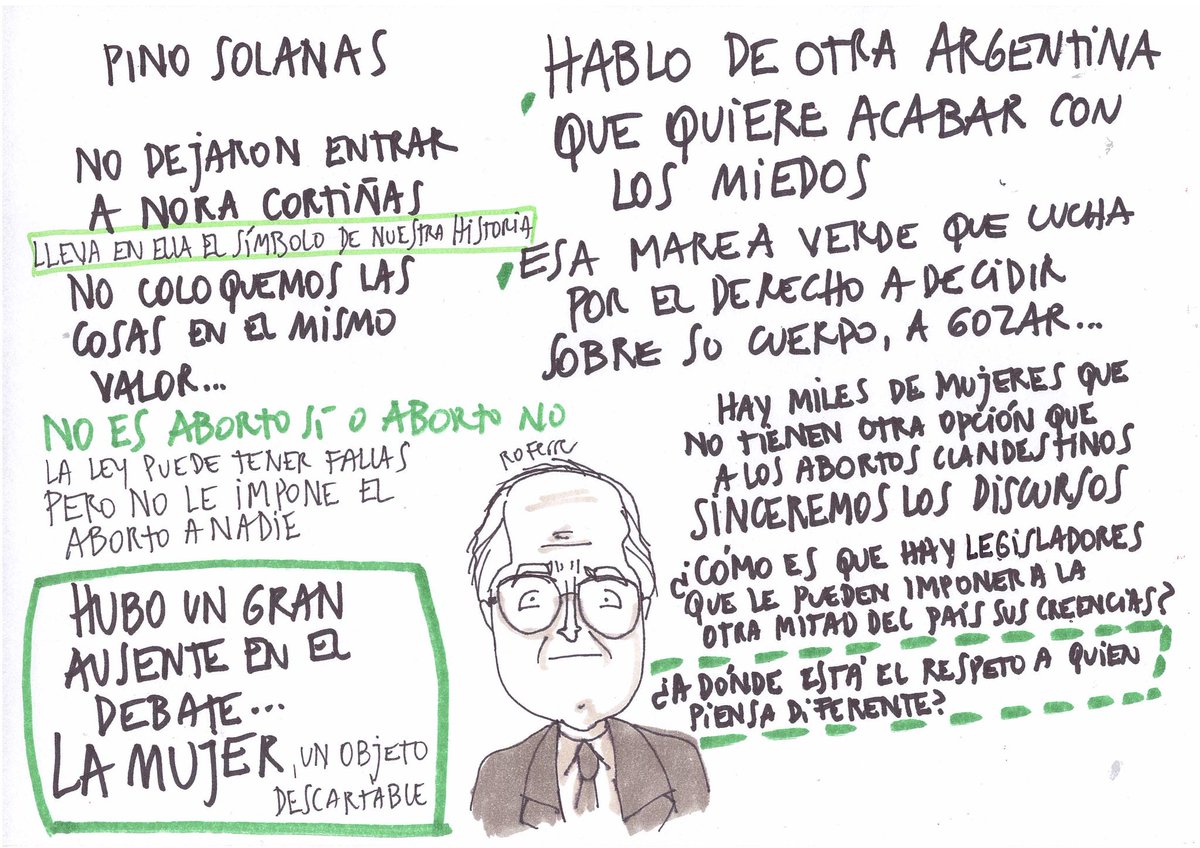 PINO SOLANAS
NO DEJARON ENTRAR
A NORA CORTIÑAS
LLEVA EN ELLA EL SÍMBOLO DE NUESTRA HISTORIA
NO COLOQUEMOS LAS
COSAS EN EL MISMO
VALOR...
NO ES ABORTO SÍ O ABORTO NO
LA LEY PUEDE TENER FALLAS
PERO NO LE IMPONE EL
ABORTO A NADIE
HUBO UN GRAN
AUSENTE EN EL
DEBATE...
LA MUJER, UN OBJETO
DESCARTABLE
HABLO DE OTRA ARGENTINA
QUE QUIERE ACABAR CON
LOS MIEDOS
ESA MAREA VERDE QUE LUCHA
POR EL DERECHO A DECIDIR
SOBRE SO CUERPO, A GOZAR...
HAY MILES DE MUJERES QUE
NO TIENEN OTRA OPCIÓN QUE
A LOS ABORTOS CLANDESTINOS
SINCEREMOS LOS DISCURSOS
¿CÓMO ES QUE HAY LEGISLADORES
QUE LE PUEDEN IMPONER A LA
OTRA MITAD DEL PAÍS SUS CREENCIAS?
¿A DÓNDE ESTÁ EL RESPETO A QUIEN
PIENSA DIFERENTE?
RO FERRE